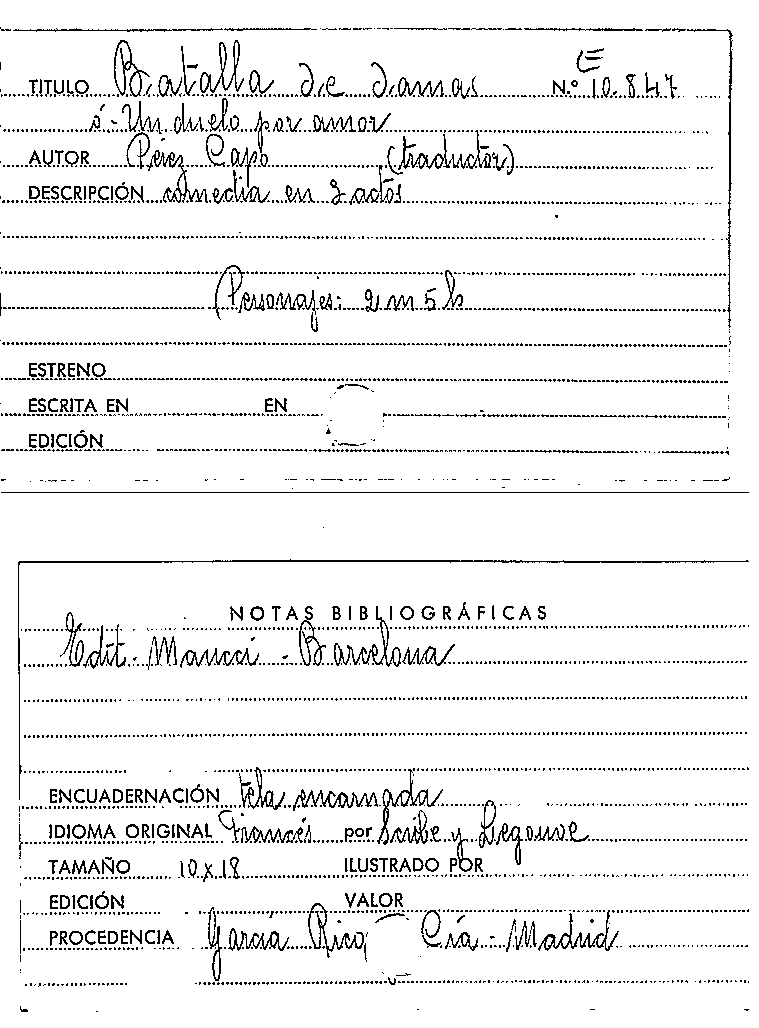 E
TITULO Batalla de damas N.º 10.847
ó - Un duelo por amor
AUTOR Pérez Capo (traductor)
DESCRIPCIÓN comedia en 3 actos
Personajes: 2 m 5 h
ESTRENO
ESCRITA EN EN
EDICIÓN
NOTAS BIBLIOGRÁFICAS
Edit. Maucci - Barcelona
ENCUADERNACIÓN tela encarnada
IDIOMA ORIGINAL Francés por Scribe y Legouve
TAMAÑO 10 x 18 ILUSTRADO POR
EDICIÓN VALOR
PROCEDENCIA García Rico Cía - Madrid